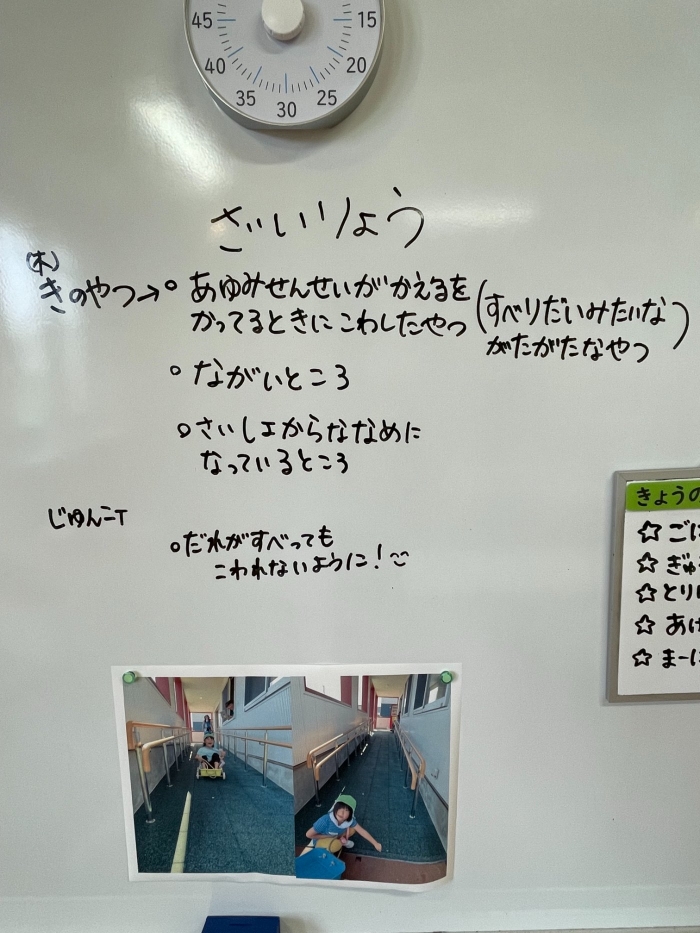 45
15
40
20
35
25
30
ざいりょう
(木)
きのやつ→○ あゆみせんせいが かえるを (すべりだいみたいな
かってるときに こわしたやつ がたがたなやつ)
○ ながいところ
○ さいしょからななめに
なっているところ
じゅんこT
○ だれがすべっても
こわれないように!
きょうの
☆ ごに
☆ ぎゅ
☆ とり
☆ あげ
☆ まーに